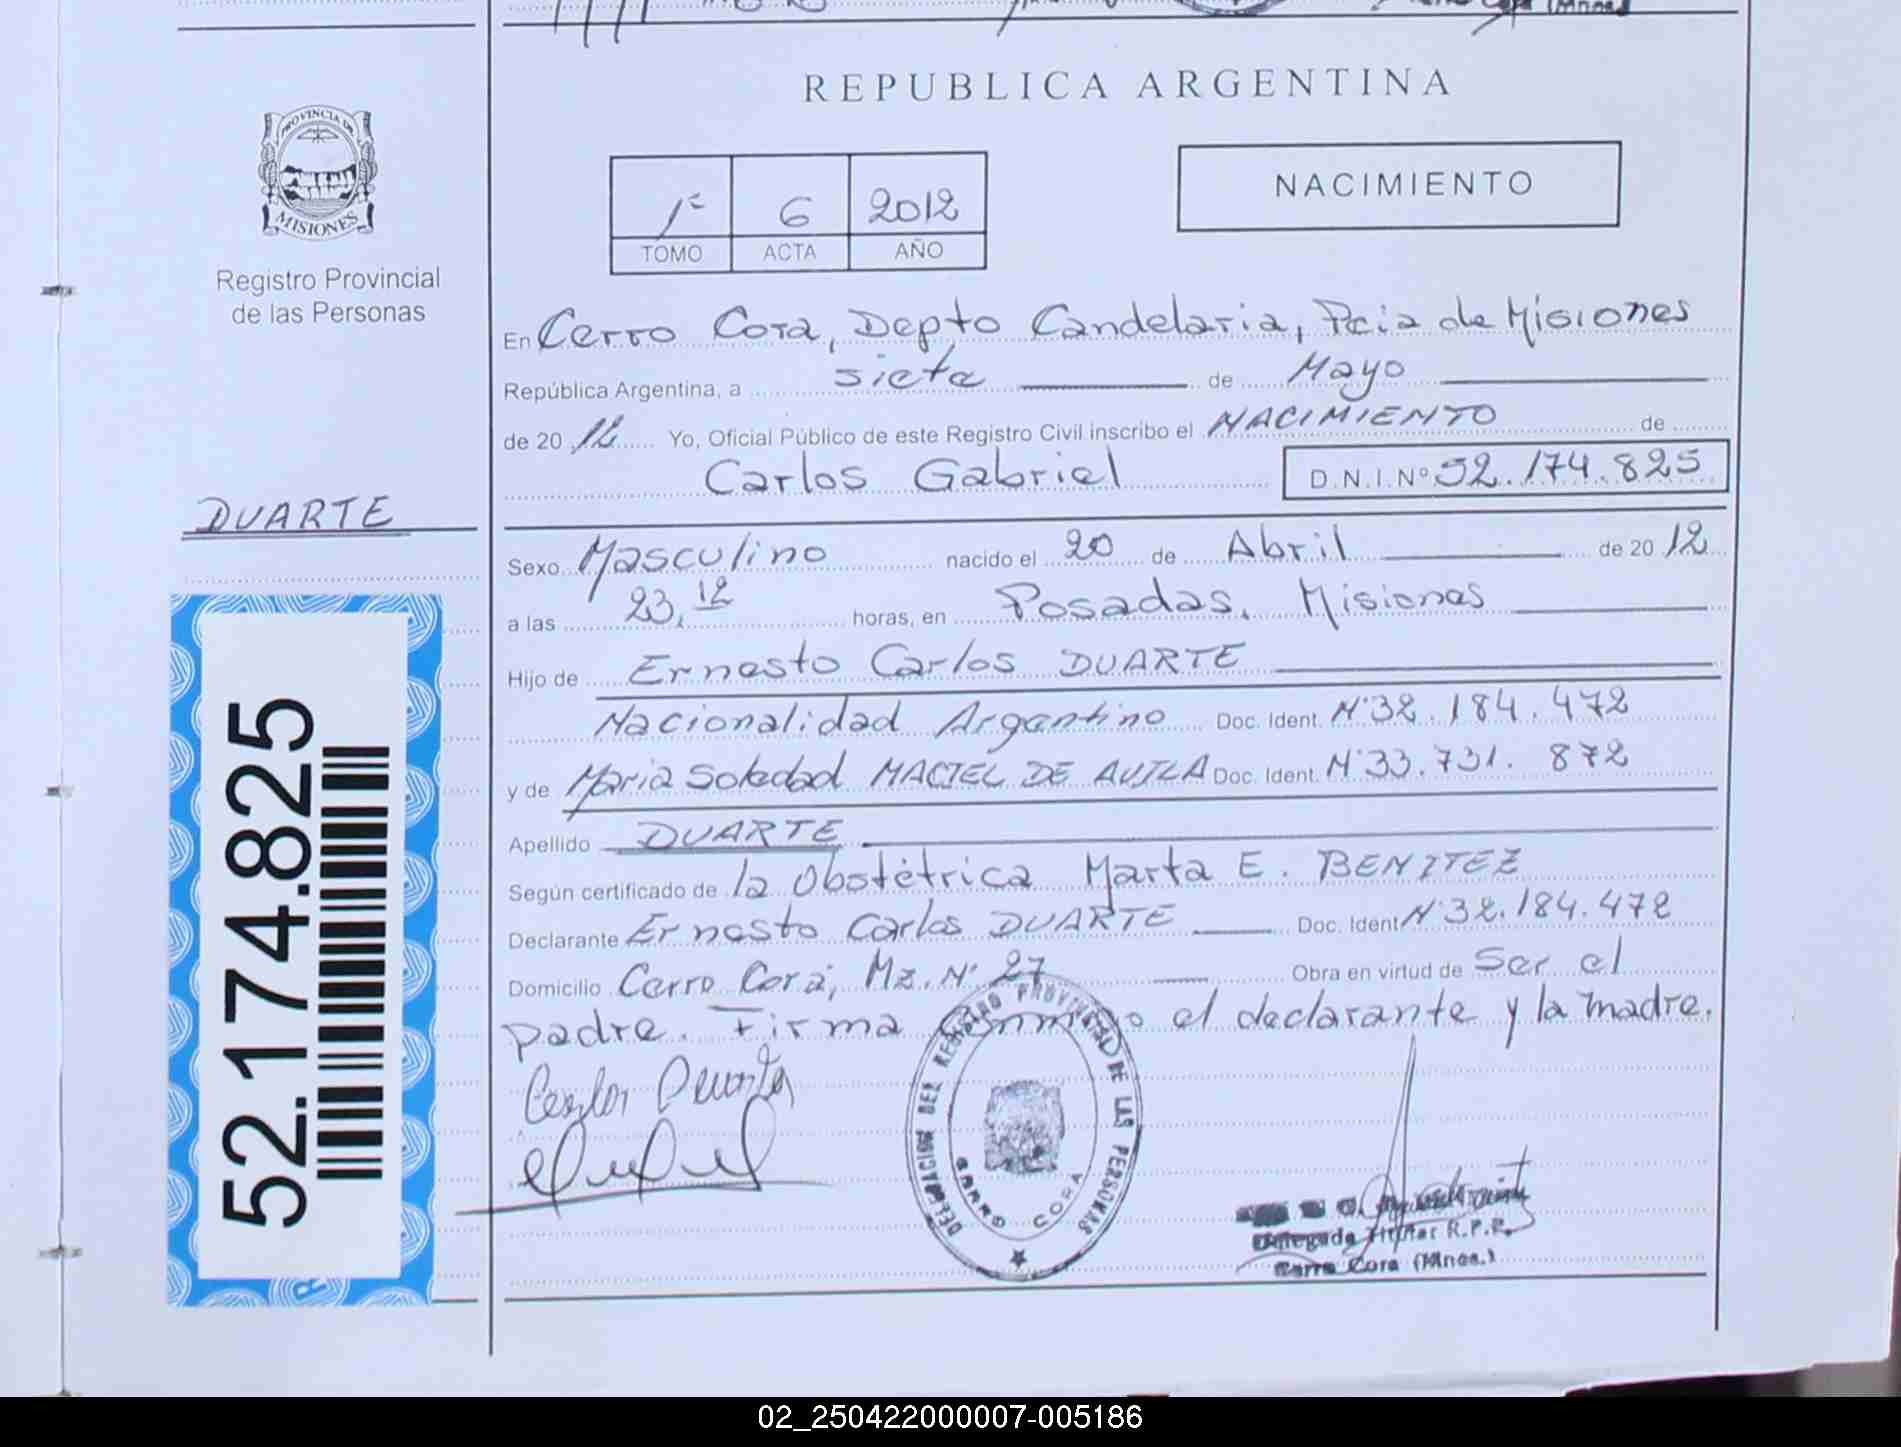 REPUBLICA ARGENTINA
PROVINCIA DE
MISIONES
Registro Provincial
de las Personas
1º 6 2012
TOMO ACTA AÑO
NACIMIENTO
En Cerro Cora, Depto Candelaria, Pcia de Misiones
República Argentina, a siete de Mayo
de 20 12 Yo, Oficial Público de este Registro Civil inscribo el NACIMIENTO de
Carlos Gabriel D.N.I.Nº 52.174.825
DUARTE
Sexo Masculino nacido el 20 de Abril de 20 12
a las 23,12 horas, en Posadas, Misiones
Hijo de Ernesto Carlos DUARTE
Nacionalidad Argentino Doc. Ident. Nº 32.184.472
y de Maria Soledad MACIEL DE AVILA Doc. Ident. Nº 33.731.872
Apellido DUARTE
Según certificado de la Obstétrica Marta E. BENITEZ
Declarante Ernesto Carlos DUARTE Doc. Ident Nº 32.184.472
Domicilio Cerro Corá, Mz. Nº 27 Obra en virtud de Ser el
padre. Firma Conmigo el declarante y la madre.
52.174.825
Carlos Duarte
DELEGACION DEL REGISTRO PROVINCIAL DE LAS PERSONAS
CERRO CORA
Delegada Titular R.P.P.
Cerro Cora (Mnes.)
02_250422000007-005186